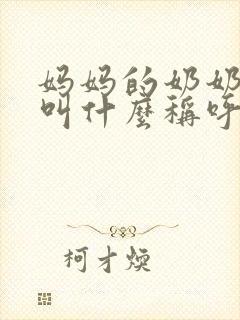 妈妈的奶奶
叫什麼稱呼
柯才煥